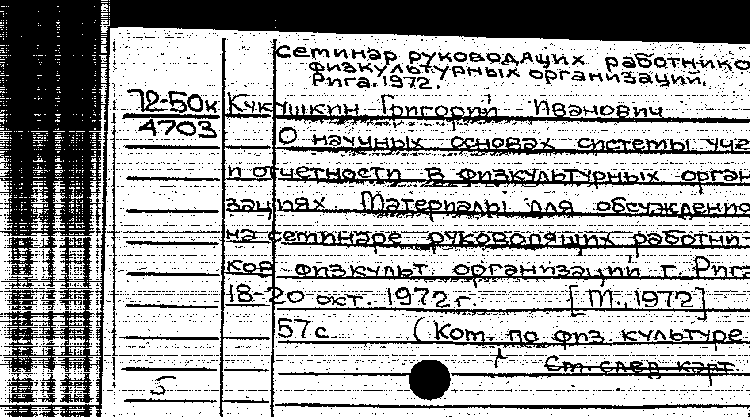 Семинар руководящих работнико
физкультурных организаций.
Рига. 1972.
72-50к Кукушкин Григорий Иванович
4703 О научных основах системы уче
и отчетности в физкультурных орган
зациях. Материалы для обсуждения
на семинаре руководящих работни-
ков физкульт. организаций г. Рига
18-20 окт. 1972 г. [М., 1972]
57с (Ком. по физ. культуре
См. след карт
5